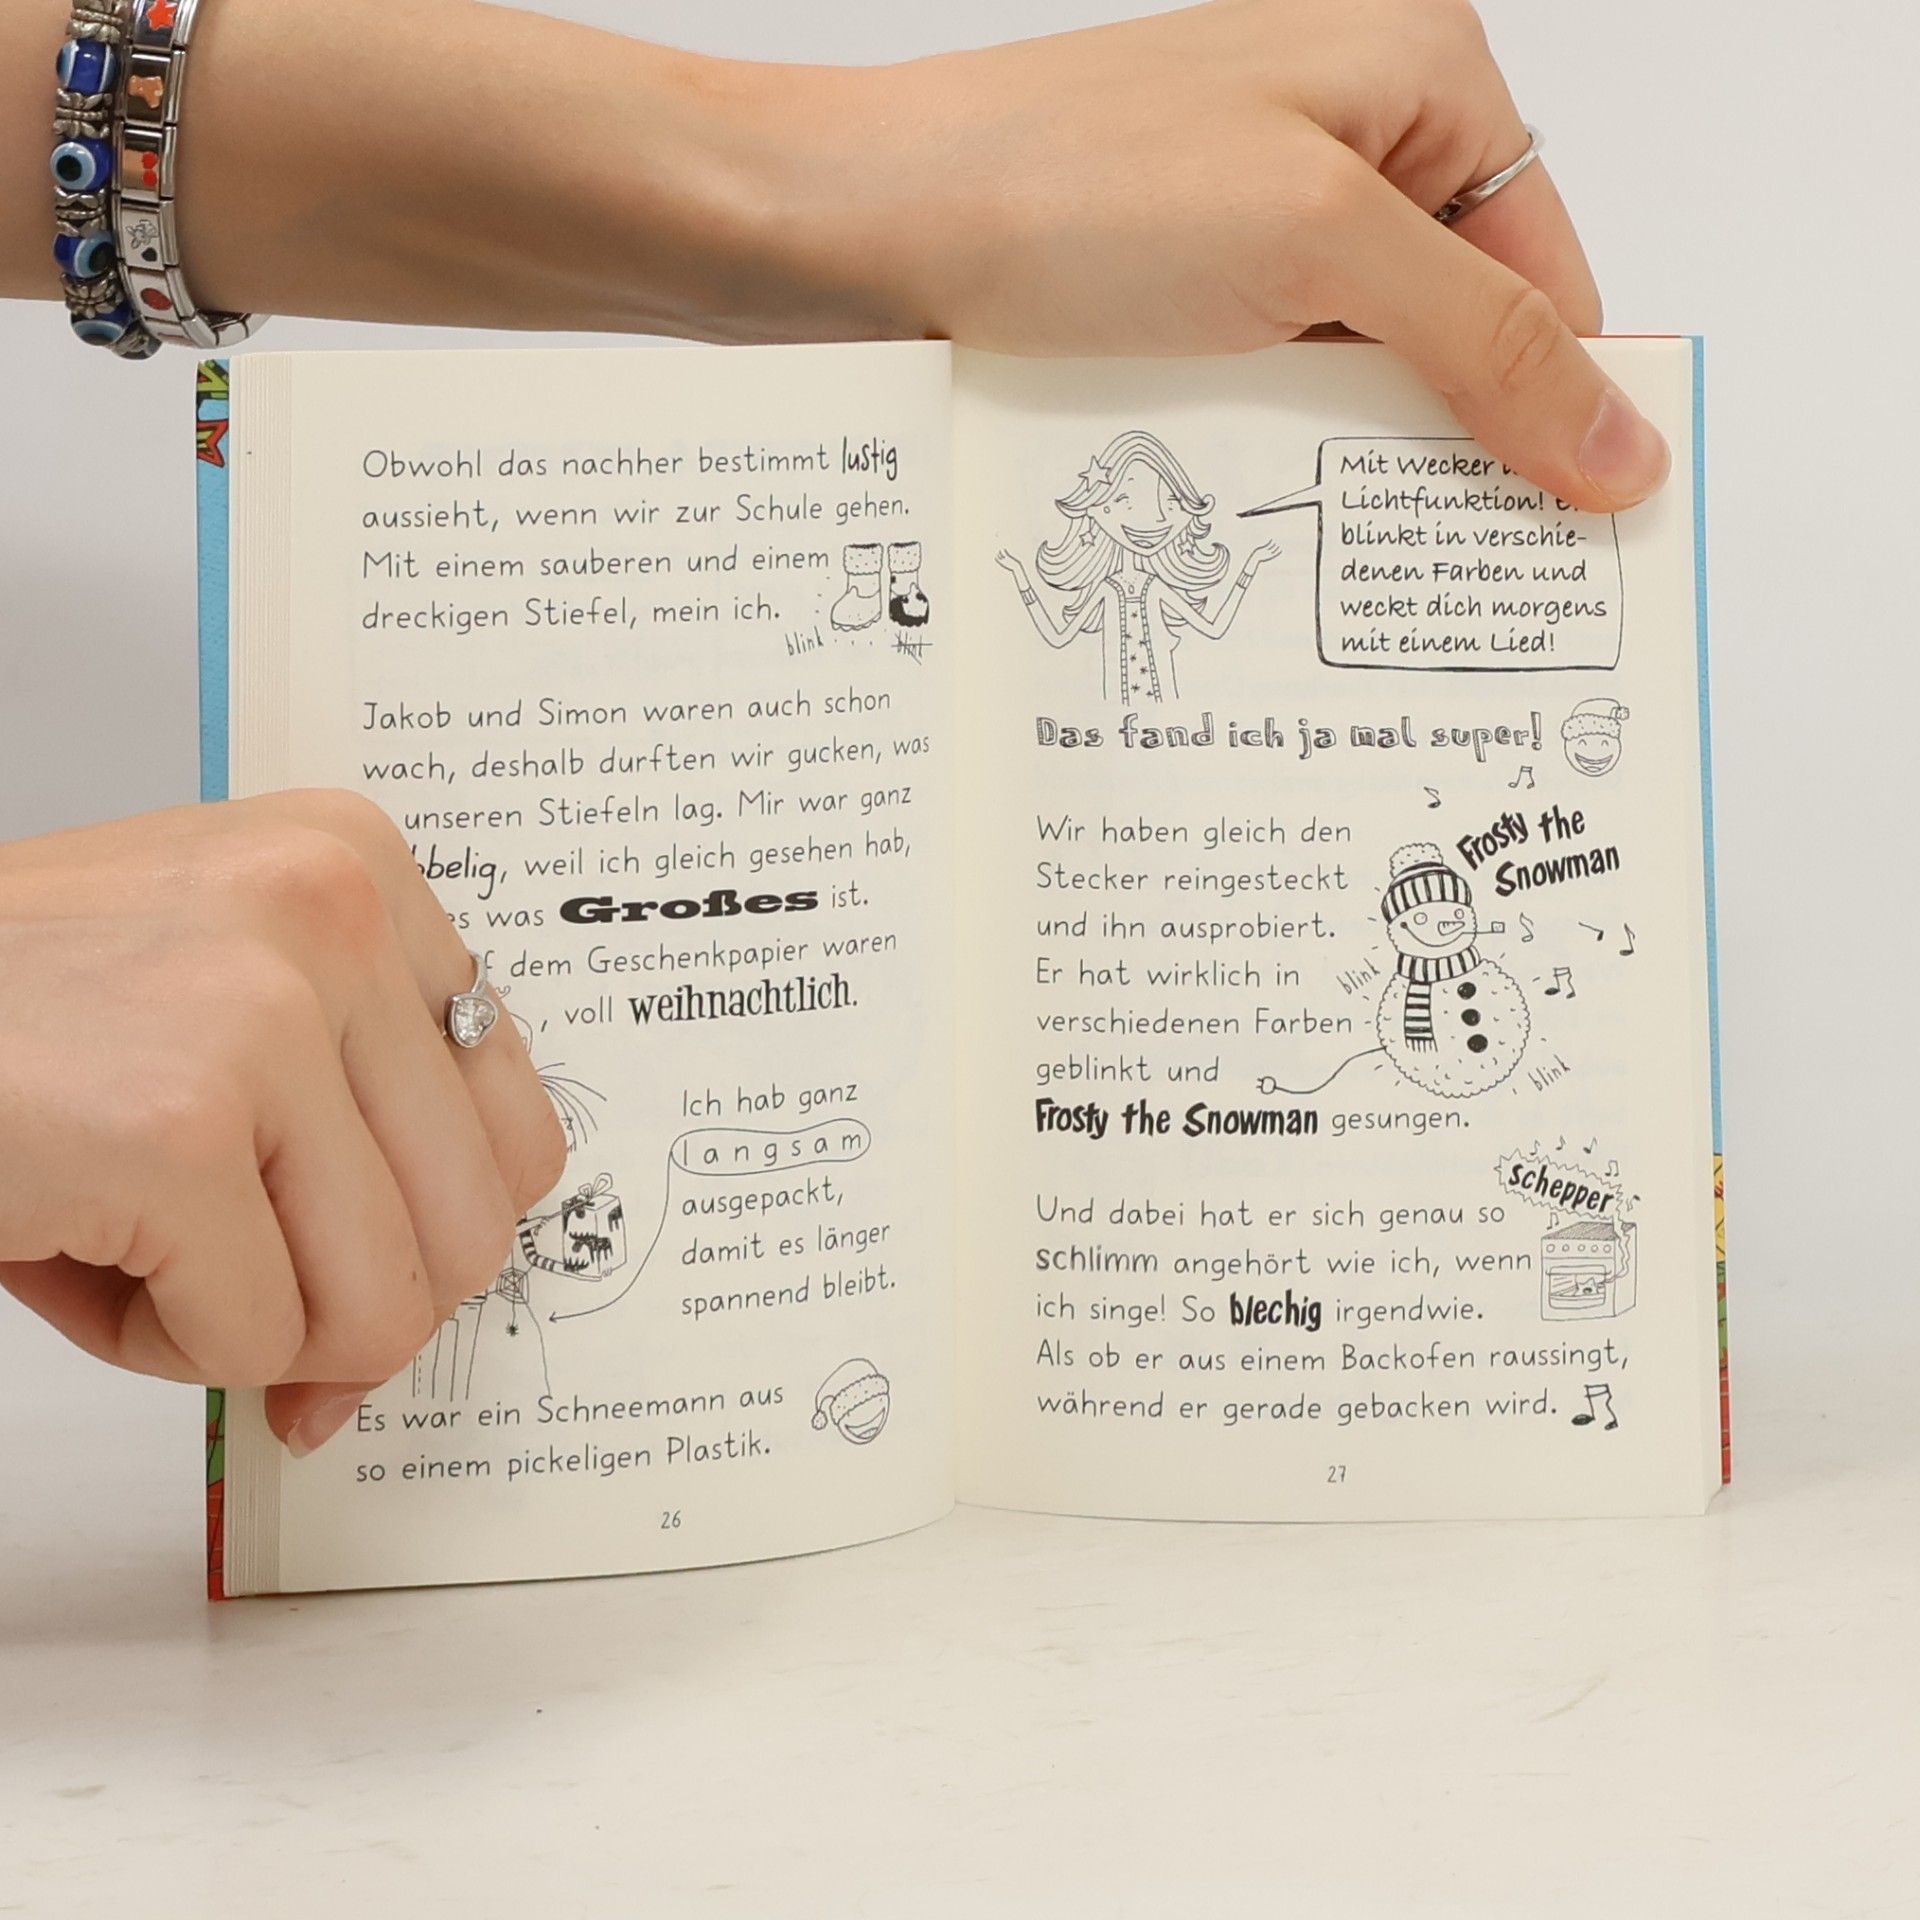 Obwohl das nachher bestimmt lustig
aussieht, wenn wir zur Schule gehen.
Mit einem sauberen und einem
dreckigen Stiefel, mein ich.
blink blink
Jakob und Simon waren auch schon
wach, deshalb durften wir gucken, was
unseren Stiefeln lag. Mir war ganz
weil ich gleich gesehen hab,
was Großes ist.
dem Geschenkpapier waren
, voll weihnachtlich.
Ich hab ganz
langsam
ausgepackt,
damit es länger
spannend bleibt.
Es war ein Schneemann aus
so einem pickeligen Plastik.
26
Mit Wecker
Lichtfunktion!
blinkt in verschie-
denen Farben und
weckt dich morgens
mit einem Lied!
Das fand ich ja mal super!
Wir haben gleich den
Stecker reingesteckt
und ihn ausprobiert.
Er hat wirklich in
verschiedenen Farben
geblinkt und
Frosty the Snowman gesungen.
Frosty the
Snowman
blink
blink
Und dabei hat er sich genau so
schlimm angehört wie ich, wenn
ich singe! So blechig irgendwie.
Als ob er aus einem Backofen raussingt,
während er gerade gebacken wird.
schepper
27